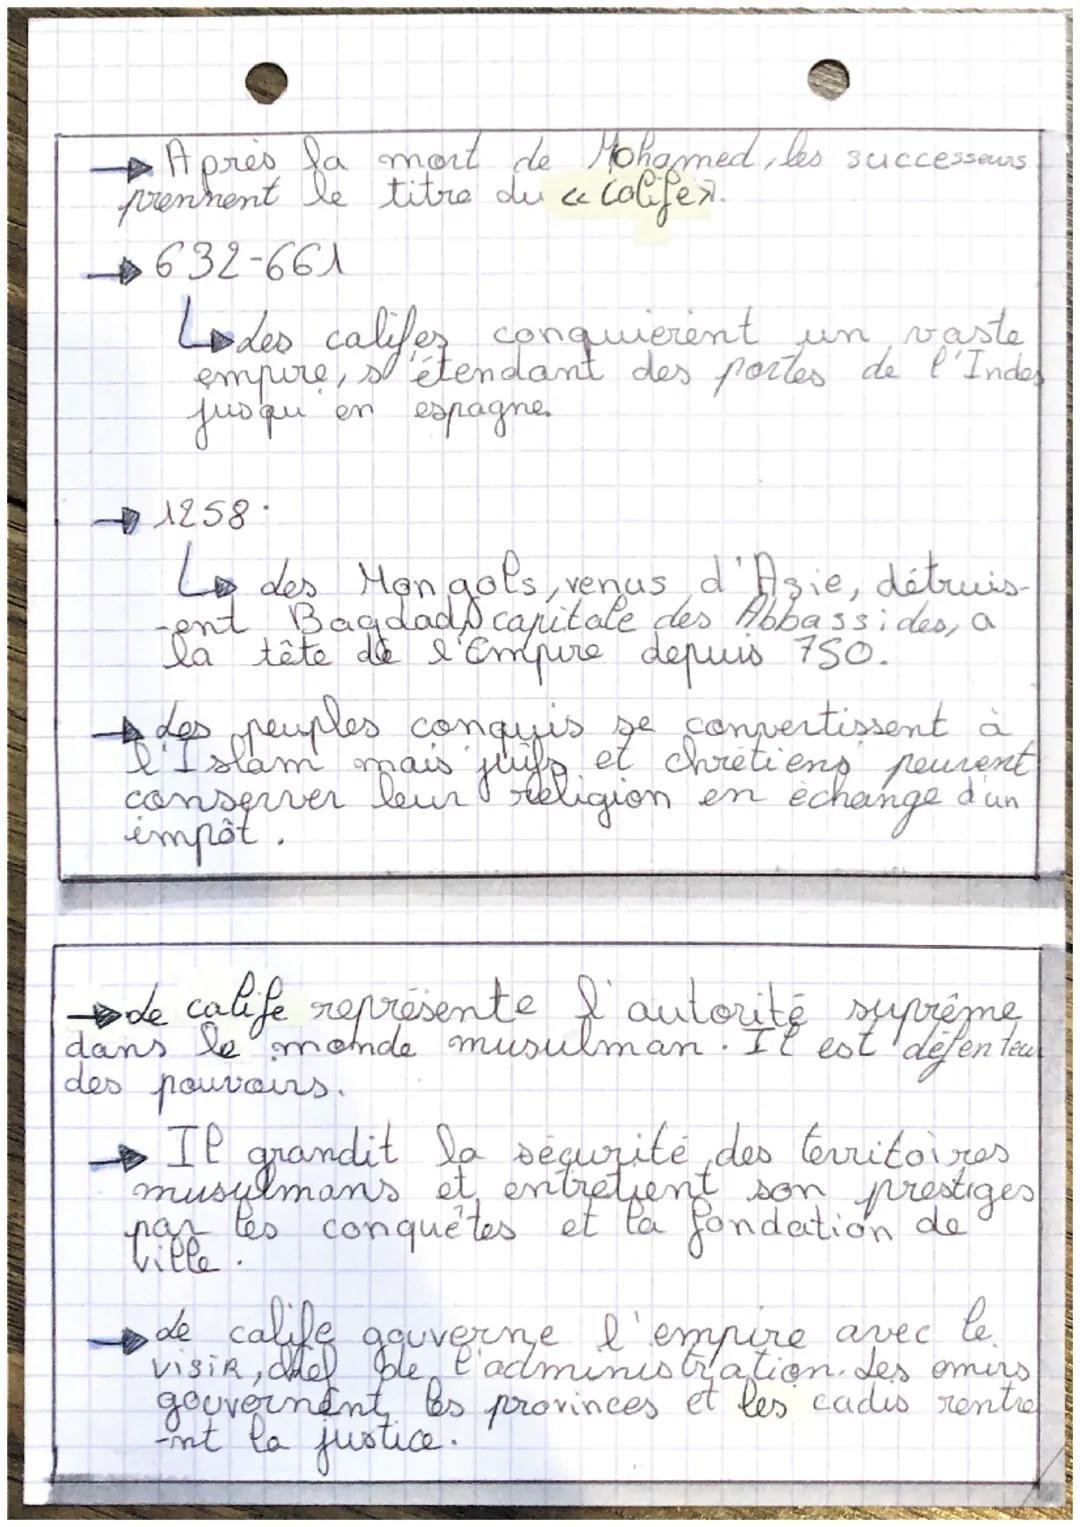 → Après la mort de Mohamed, les successeurs
prennent le titre du « Calife ».
→ 632-661
↳ Les califes conquièrent un vaste
empire, s'étendant des portes de l'Indes
jusqu'en espagne.
→ 1258 .
↳ des Mongols, venus d'Asie, détruis-
-ent Bagdad, capitale des Abbassides, a
la tête de l'Empire depuis 750.
→ Les peuples conquis se convertissent à
l'Islam mais juifs et chrétiens peuvent
conserver leur religion en échange d'un
impôt.
→ Le calife représente l'autorité suprême
dans le monde musulman. Il est défenteur
des pouvoirs.
→ Il grandit la sécurité des territoires
musulmans et entretient son prestiges
par les conquêtes et la fondation de
ville.
→ Le calife gouverne l'empire avec le
visir, chef de l'administration. Les emirs
gouvernent les provinces et les cadis rentre
-nt la justice.